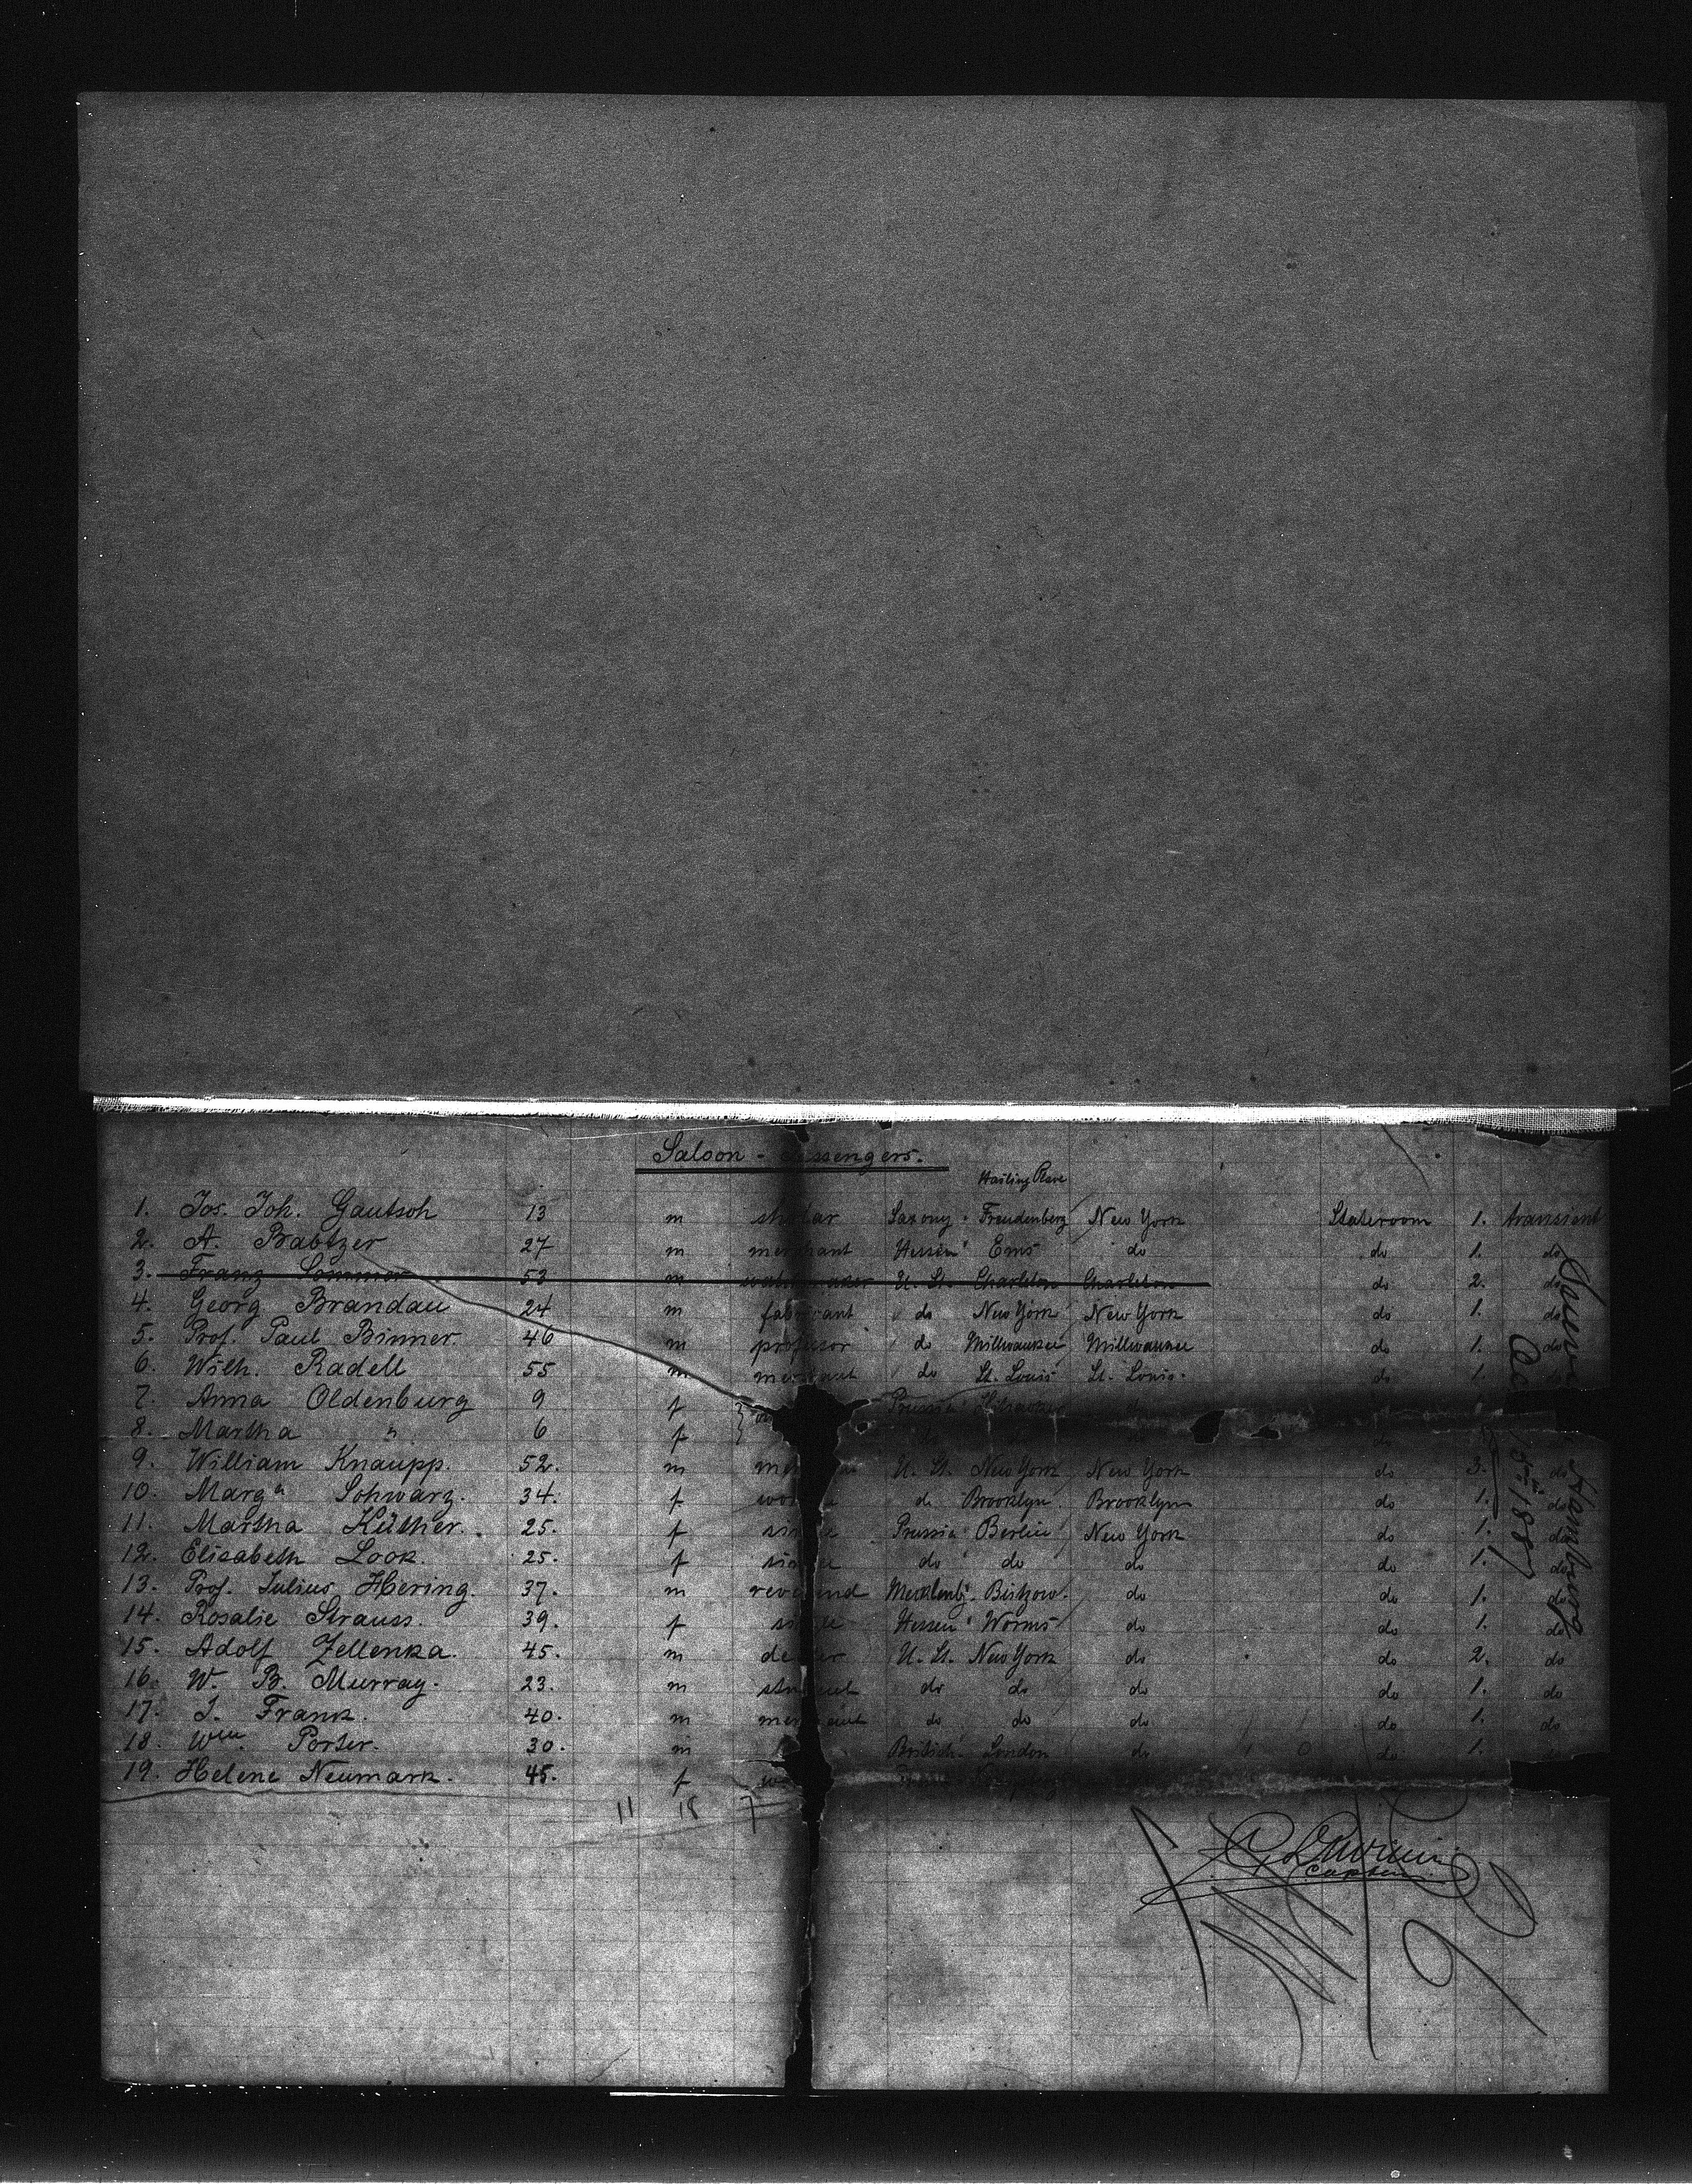 Saloon - Passengers.
Hailing Place
1. Jos. Joh. Gautsch 13 m scholar Saxony Freudenberg New York Stateroom 1. transient
2. A. Babtzer 27 m merchant Hessen Ems do do 1. do
3. Franz Sommer 53 m U. St. Charleston Charleston do 2. do
4. Georg Brandau 24 m fabricant do New York New York do 1. do
5. Prof. Paul Binner 46 m professor do Millwaukee Millwaukee do 1. do
6. Wilh. Radell 55 m merchant do St. Louis St. Louis. do 1. do
7. Anna Oldenburg 9 f Prussia
8. Martha " 6 f
9. William Knaupp. 52. m U. St. New York New York do 3. do
10. Marg.a Schwarz. 34. f do Brooklyn Brooklyn do 1. do
11. Martha Küther. 25. f single Prussia Berlin New York do 1. do
12. Elisabeth Look. 25. f single do do do do 1. do
13. Prof. Julius Hering. 37. m reverend Mecklenbg. Bützow. do do 1. do
14. Rosalie Strauss. 39. f single Hessen Worms do do 1. do
15. Adolf Zellenka. 45. m U. St. New York do do 2. do
16. W. B. Murray. 23. m student do do do do 1. do
17. J. Frank. 40. m merchant do do do do 1. do
18. Wm. Porter. 30. m British London do 0 do 1. do
19. Helene Neumark. 45. f
11 18 7
Captain
Hamburg
Oct 15th 1887